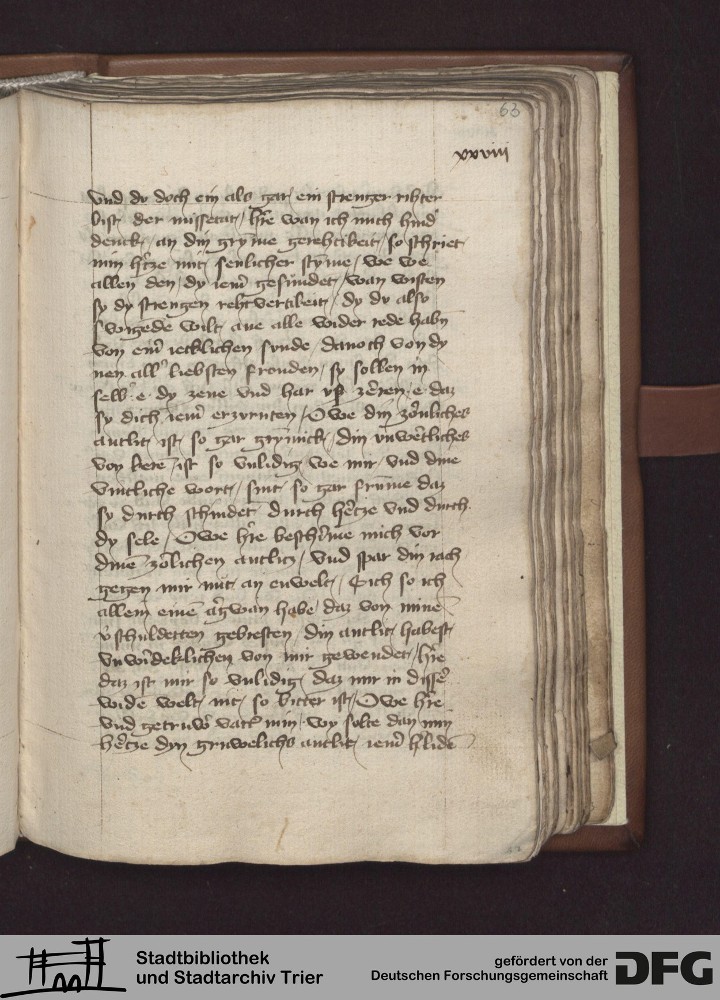 63
xxviii
vnd du doch ein als gar ein strenger rihter
bist der missetat / h're wan ich mich hind
denck an din gry̅me gerehtikeit / so schriet
min h'tze mit senlicher sty̅me / we we
allen den / dy iem' gesundet / wan wisten
sy dy strengen rehtvertikeit / dy du also
swigede wilt / ane alle wider rede habn̄
von eim̄ iecklichen sunde / danoch von dy
nen all' liebsten frouden / sy sollen in
selb' e dy zene vnd har vß zerren e daz
sy dich iem' erzurnten / Owe din zornliches
antlit ist so gar grymick / din vnwertliches
von kere̅ ist so vnlidig we mir / vnd dine
vintliche wort / sint so gar furine daz
sy durch schindet durch hertze vnd durch
dy sele / Owe h're beschirme mich vor
dine̅ zorlichen antlicz / vnd spar din rach
gegen mir nit an enwelt / Sich so ich
allein eine̅ argwan habe / daz von mine̅
v'schuldetten gebresten / din antlit habest
vnwirdeklichen von mir gewendet / h're
daz ist mir so vnlidig / daz mir in disse'
wide̅ welt nit so bitter ist / Owe h're
vnd getruw' vatt' min / wy solte dan min
hertze dyn gruwelichs antlit iem' h'lide̅
Stadtbibliothek
und Stadtarchiv Trier
gefördert von der
Deutschen Forschungsgemeinschaft
DFG